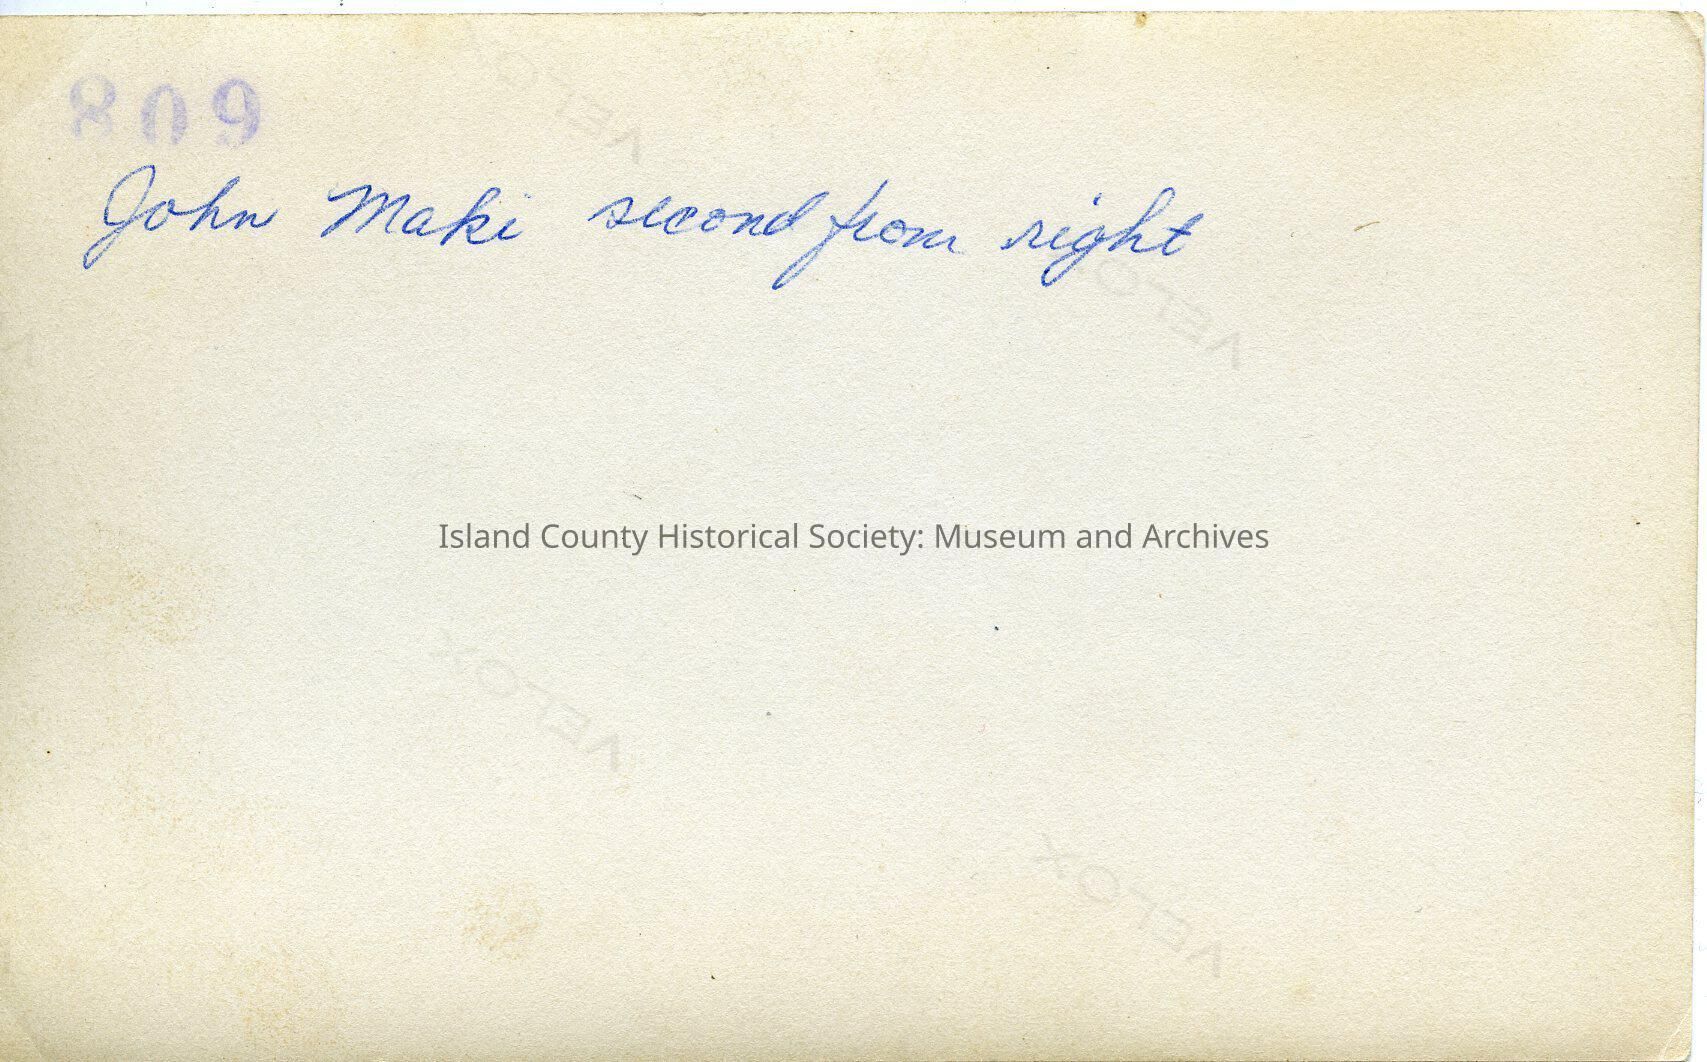 809
John Maki second from right
VELOX
VELOX
Island County Historical Society: Museum and Archives
VELOX
VELOX